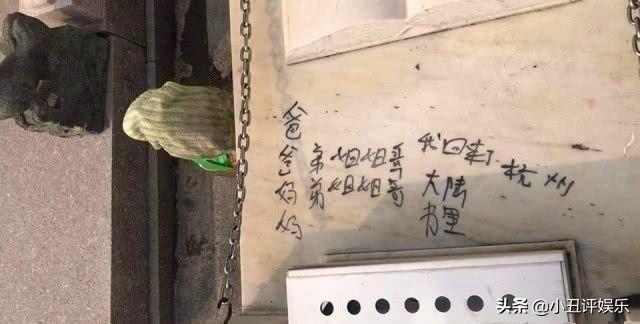 爸
爸 弟 姐姐哥 我回来了 杭州
妈 弟 姐姐哥 大陆
妈 里
头条 @小丑评娱乐